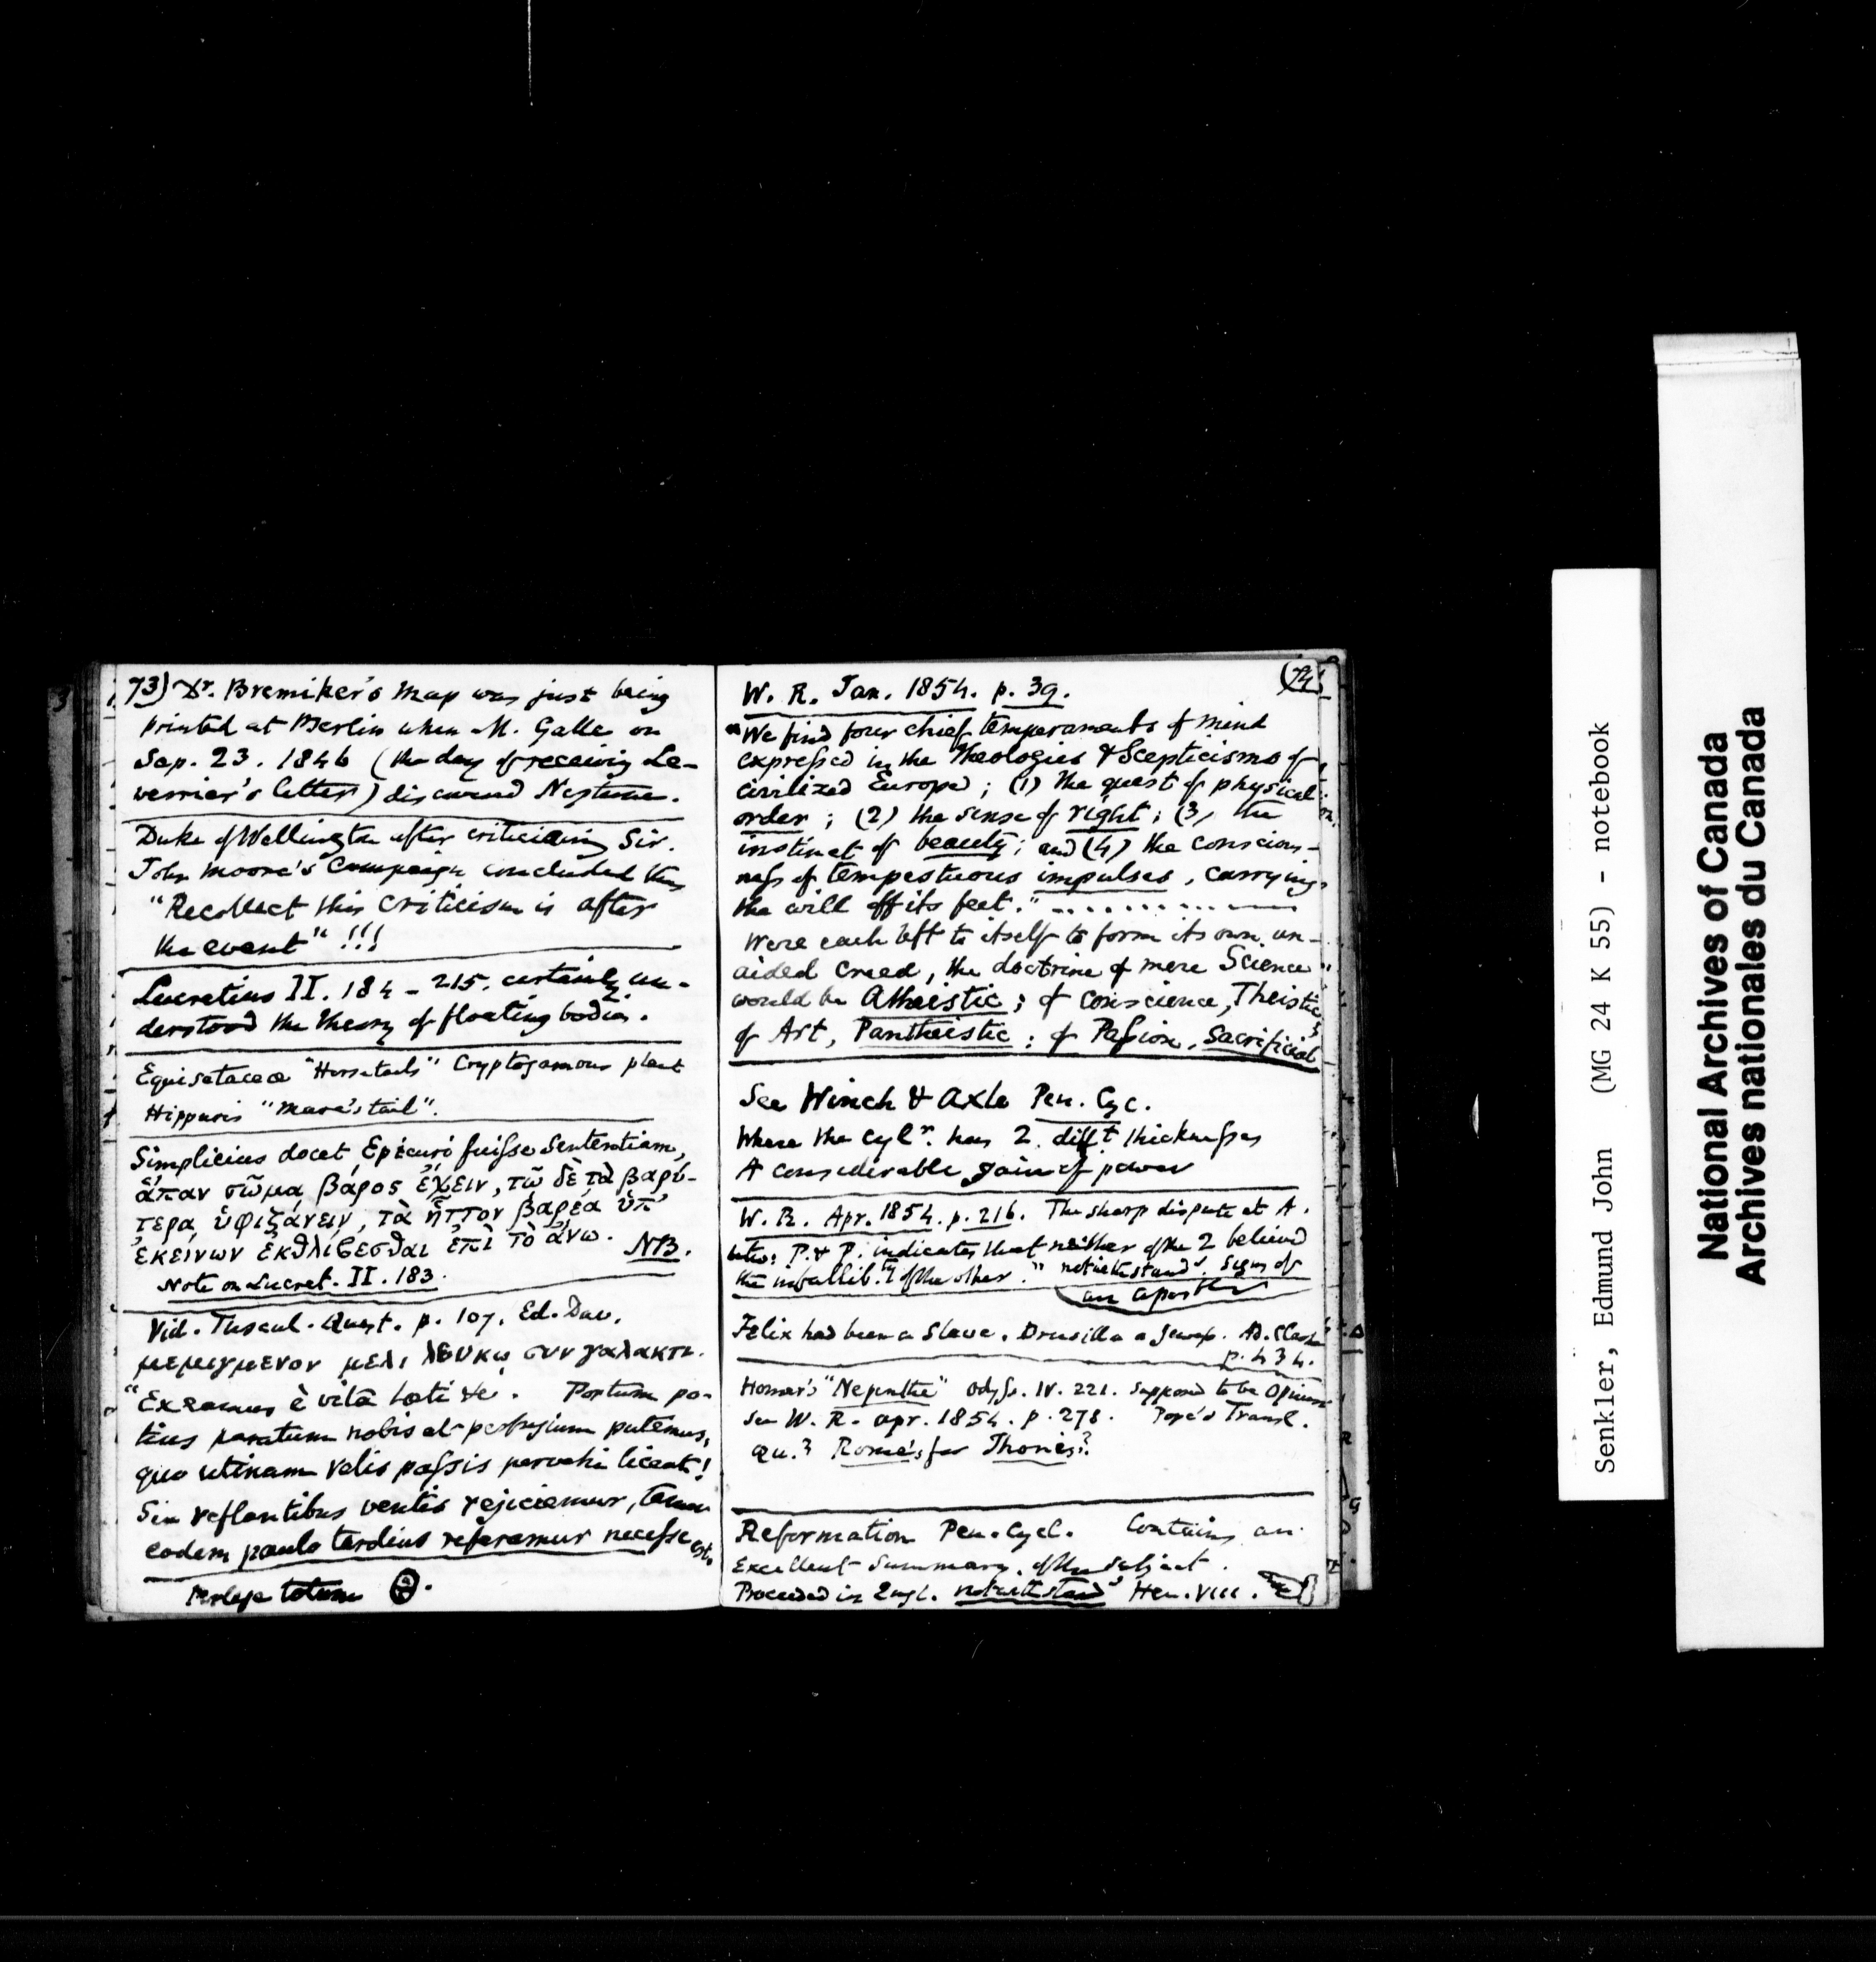 73) Dr. Bremiker's Map was just being
printed at Berlin when M. Galle on
Sep. 23. 1846 (the day of receiving Le-
verrier's letter) discovered Neptune.
Duke of Wellington after criticising Sir.
John Moore's Campaign concluded thus
"Recollect this criticism is after
the event" !!!
Lucretius II. 184 - 215. certainly un-
derstood the theory of floating bodies.
Equisetaceæ "Horsetails" Cryptogamous plant
Hippuris "Mare's tail".
Simplicius docet Epicuri fuisse Sententiam,
ἅπαν σῶμα βάρος ἔχειν, τῶ δὲ τὰ βαρύ-
τερα ὑφιζάνειν, τὰ ἧττον βαρέα ὑπ'
ἐκείνων ἐκθλίβεσθαι ἐπὶ τὸ ἄνω. NB.
Note on Lucret. II. 183.
Vid. Tuscul. Quest. p. 107. Ed. Dav.
μεμιγμενον μελι λευκῳ συν γαλακτι.
"Exeamus è vitâ læti &c. Portum po-
tius paratum nobis et perfugium putemus,
quo utinam velis passis pervehi liceat!
Sin reflantibus ventis rejiciemur, tamen
eodem paulo tardius referamur necesse est.
Perlege totum
(74
W. R. Jan. 1854. p. 39.
"We find four chief temperaments of mind
expressed in the Theologies & Scepticisms of
civilized Europe; (1) the quest of physical
order; (2) the sense of right; (3) the
instinct of beauty; and (4) the conscious-
ness of tempestuous impulses, carrying
the will off its feet." ..........
Were each left to itself to form its own un-
aided creed, the doctrine of mere Science
would be Atheistic; of conscience, Theistic;
of Art, Pantheistic; of Passion, Sacrificial
See Winch & Axle Pen. Cyc.
Where the cylr. has 2 difft thicknesses
A considerable gain of power
W. R. Apr. 1854. p. 216. The sharp dispute at A.
betw: P. & P. indicates that neither of the 2 believed
the infallib.ty of the other." notwithstandg. signs of
an apostle
Felix had been a Slave. Drusilla a Jewess. Ad. Clarke
p. 434.
Homer's "Nepenthe" Odyss. IV. 221. supposed to be Opium
see W. R. Apr. 1854. p. 278. Pope's Transl.
Qu.? Rome's, for Thone's?
Reformation Pen. Cycl. Contains an
Excellent Summary of the subject.
Proceeded in Engl. notwithstandg Hen. VIII.
Senkler, Edmund John (MG 24 K 55) - notebook
National Archives of Canada
Archives nationales du Canada